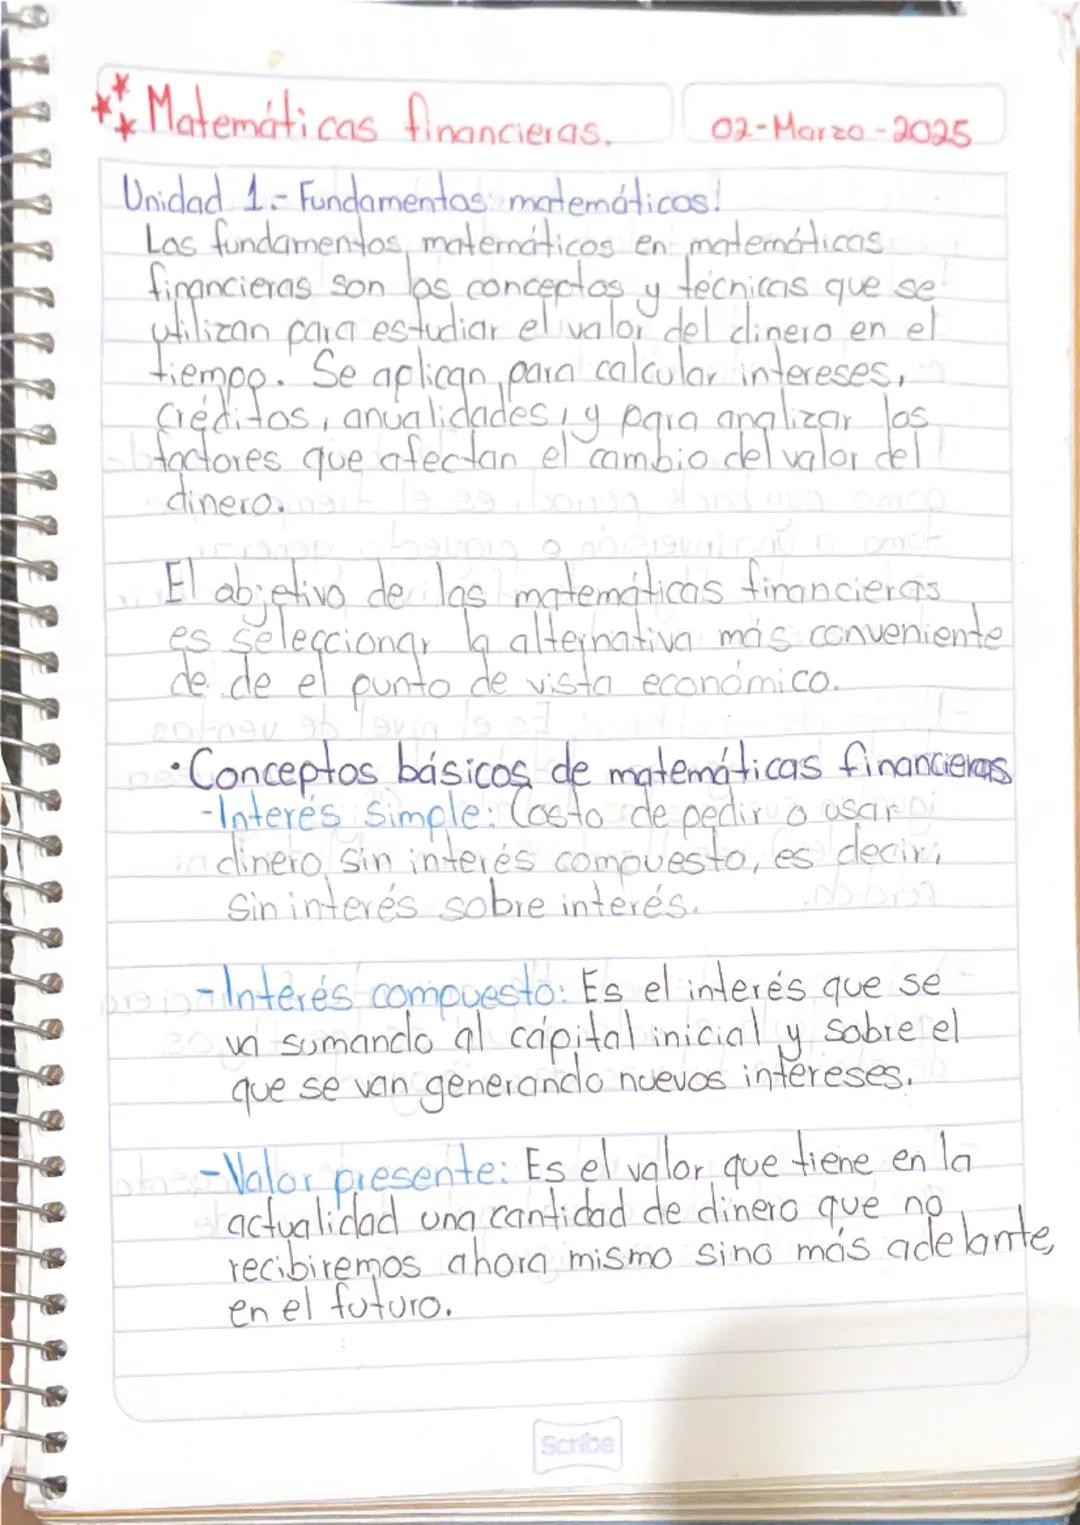 Matemáticas financieras.
02-Marzo-2025
Unidad 1.- Fundamentos matemáticos!
Los fundamentos matemáticos en matemáticas
financieras son los conceptos y técnicas que se
utilizan para estudiar el valor del dinero en el
tiempo. Se aplican para calcular intereses,
créditos, anualidades, y para analizar los
factores que afectan el cambio del valor del
dinero.
El objetivo de las matemáticas financieras
es seleccionar la alternativa más conveniente
de de el punto de vista económico.
·Conceptos básicos de matemáticas financieras
-Interés simple: Costo de pedir o usar
dinero sin interés compuesto, es decir,
sin interés sobre interés.
-Interés compuesto: Es el interés que se
va sumando al cápital inicial y sobre el
que se van generando nuevos intereses.
-Valor presente: Es el valor que tiene en la
actualidad una cantidad de dinero que no
recibiremos ahora mismo sino más adelante,
en el futuro.
Scribe